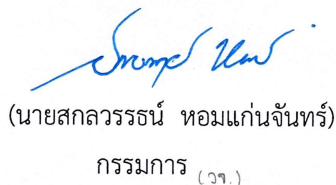 (นายสกลวรรธน์ หอมแก่นจันทร์)
กรรมการ (วช.)